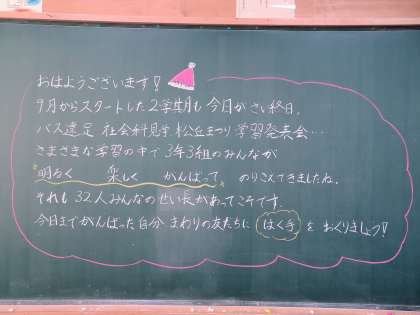 おはようございます!
9月からスタートした2学期も今日がさい終日。
バス遠足 社会科見学 松丘まつり 学習発表会…
さまざまな学習の中で3年3組のみんなが
明るく 楽しく がんばって のりこえてきましたね。
それも32人みんなのせい長があってこそです。
今日までがんばった自分 まわりの友だちに はく手 を おくりましょう!